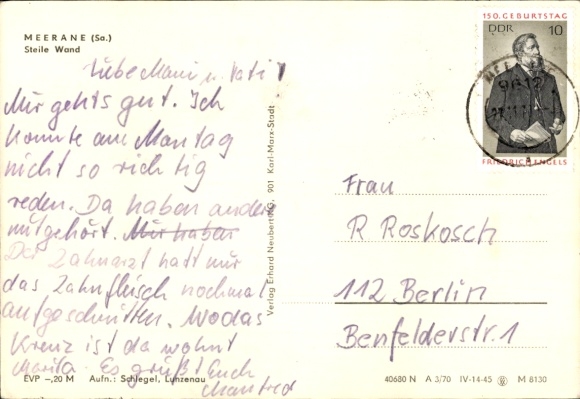 MEERANE (Sa.)
Steile Wand
Liebe Mami u. Vati!
Mir gehts gut. Ich
konnte am Montag
nicht so richtig
reden. Da haben andere
mitgehört. Mir haben
Der Zahnarzt hatt mir
das Zahnfleisch nochmal
aufgeschnitten. Wo das
Kreuz ist da wohnt
Marita. Es grüßt Euch
Manfred
EVP –,20 M Aufn.: Schlegel, Lunzenau
Verlag Erhard Neubert KG, 901 Karl-Marx-Stadt
150. GEBURTSTAG
DDR 10
FRIEDRICH ENGELS
Frau
R Roskosch
112 Berlin
Benfelderstr. 1
40680 N A 3/70 IV-14-45 M 8130